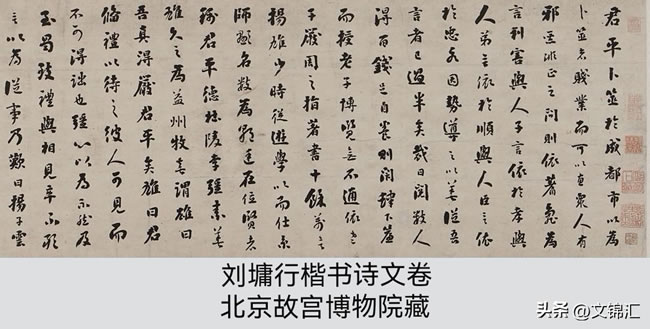 君平卜筮於成都市以為
卜筮者賤業而可以惠眾人有
邪惡非正之問則依蓍龜為
言利害與人子言依於孝與
人弟言依於順與人臣言依
於忠各因勢導之以善從吾
言者已過半矣裁日閱數人
得百錢足自養則閉肆下簾
而授老子博覽無不通依老
子嚴周之指著書十餘萬言
揚雄少時從遊學以而仕京
師顯名數為朝廷在位賢者
稱君平德杜陵李彊素善
雄久之為益州牧喜謂雄曰
吾真得嚴君平矣雄曰君
備禮以待之彼人可見而
不可得詘也彊心以為不然及
至蜀致禮與相見卒不敢
言以為從事乃歎曰揚子雲
刘墉行楷书诗文卷
北京故宫博物院藏
头条 @文锦汇